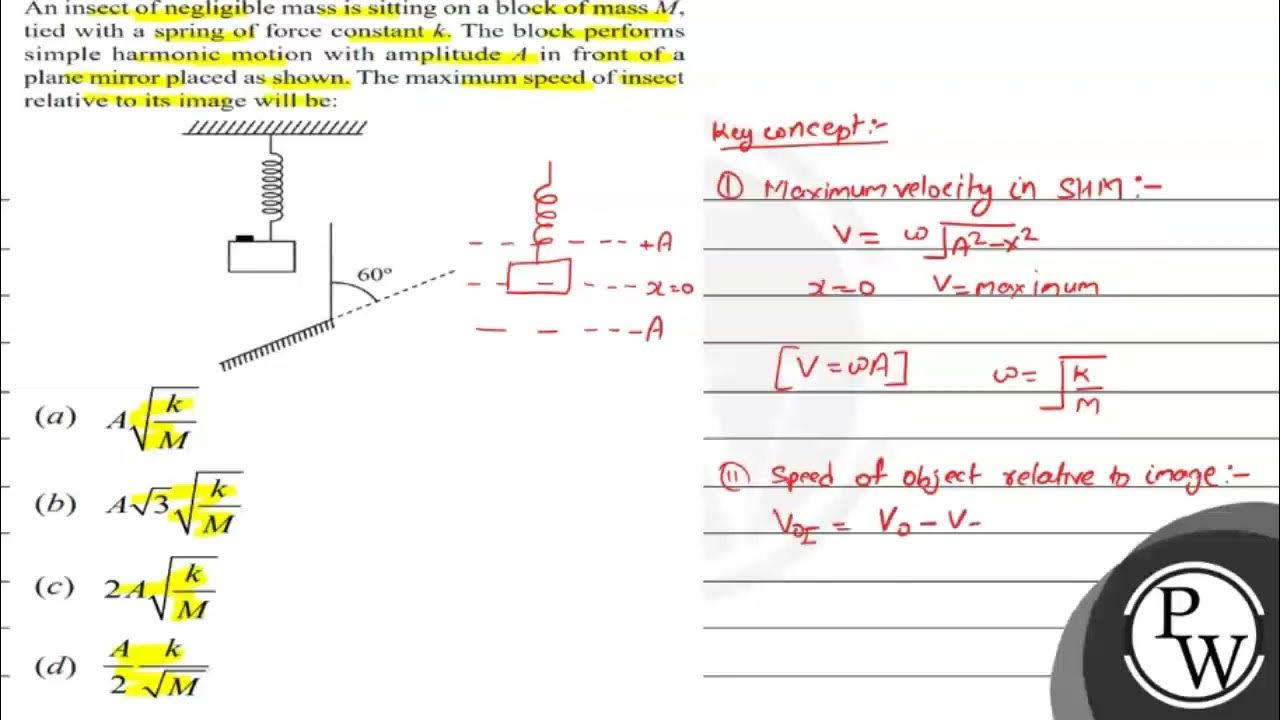 An insect of negligible mass is sitting on a block of mass M,
tied with a spring of force constant k. The block performs
simple harmonic motion with amplitude A in front of a
plane mirror placed as shown. The maximum speed of insect
relative to its image will be:
60°
+A
x=0
-A
(a) A√(k/M)
(b) A√3√(k/M)
(c) 2A√(k/M)
(d) A/2 k/√M
Key concept:-
(I) Maximum velocity in SHM:-
V = ω√(A²-x²)
x=0 V=maximum
[V=ωA] ω=√(K/M)
(II) Speed of object relative to image:-
V_OI = V_O - V-
P
W